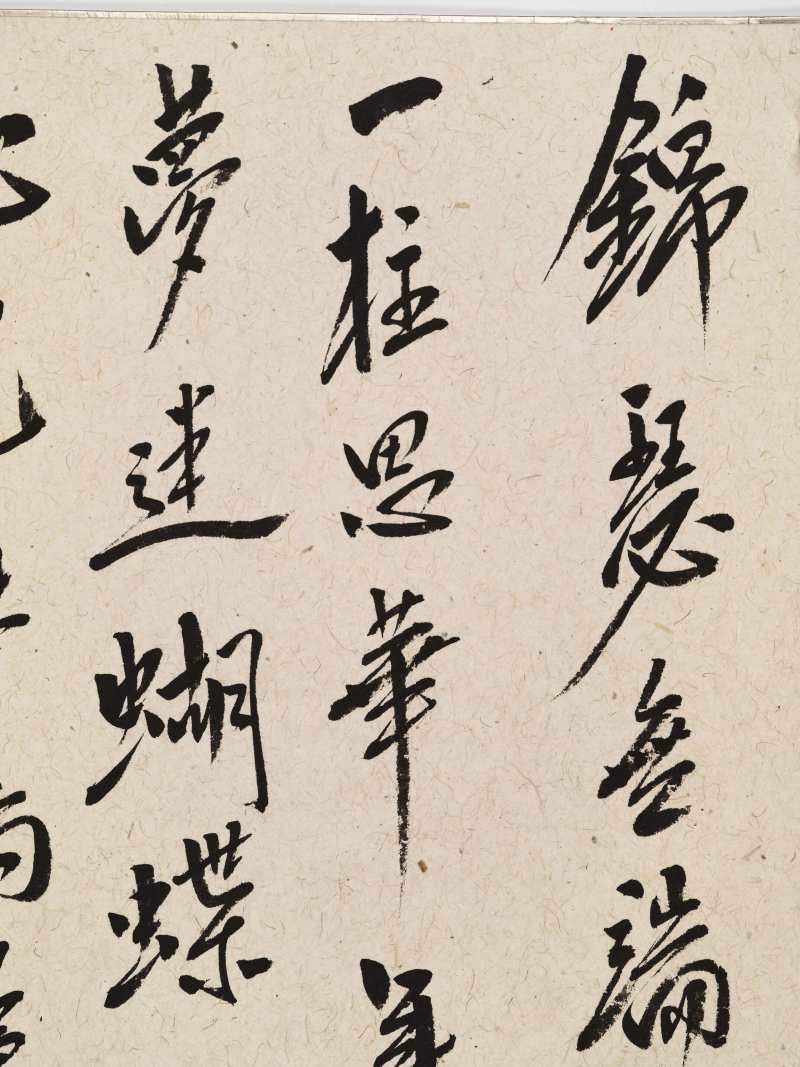 錦瑟無端
一柱思華年
夢迷蝴蝶